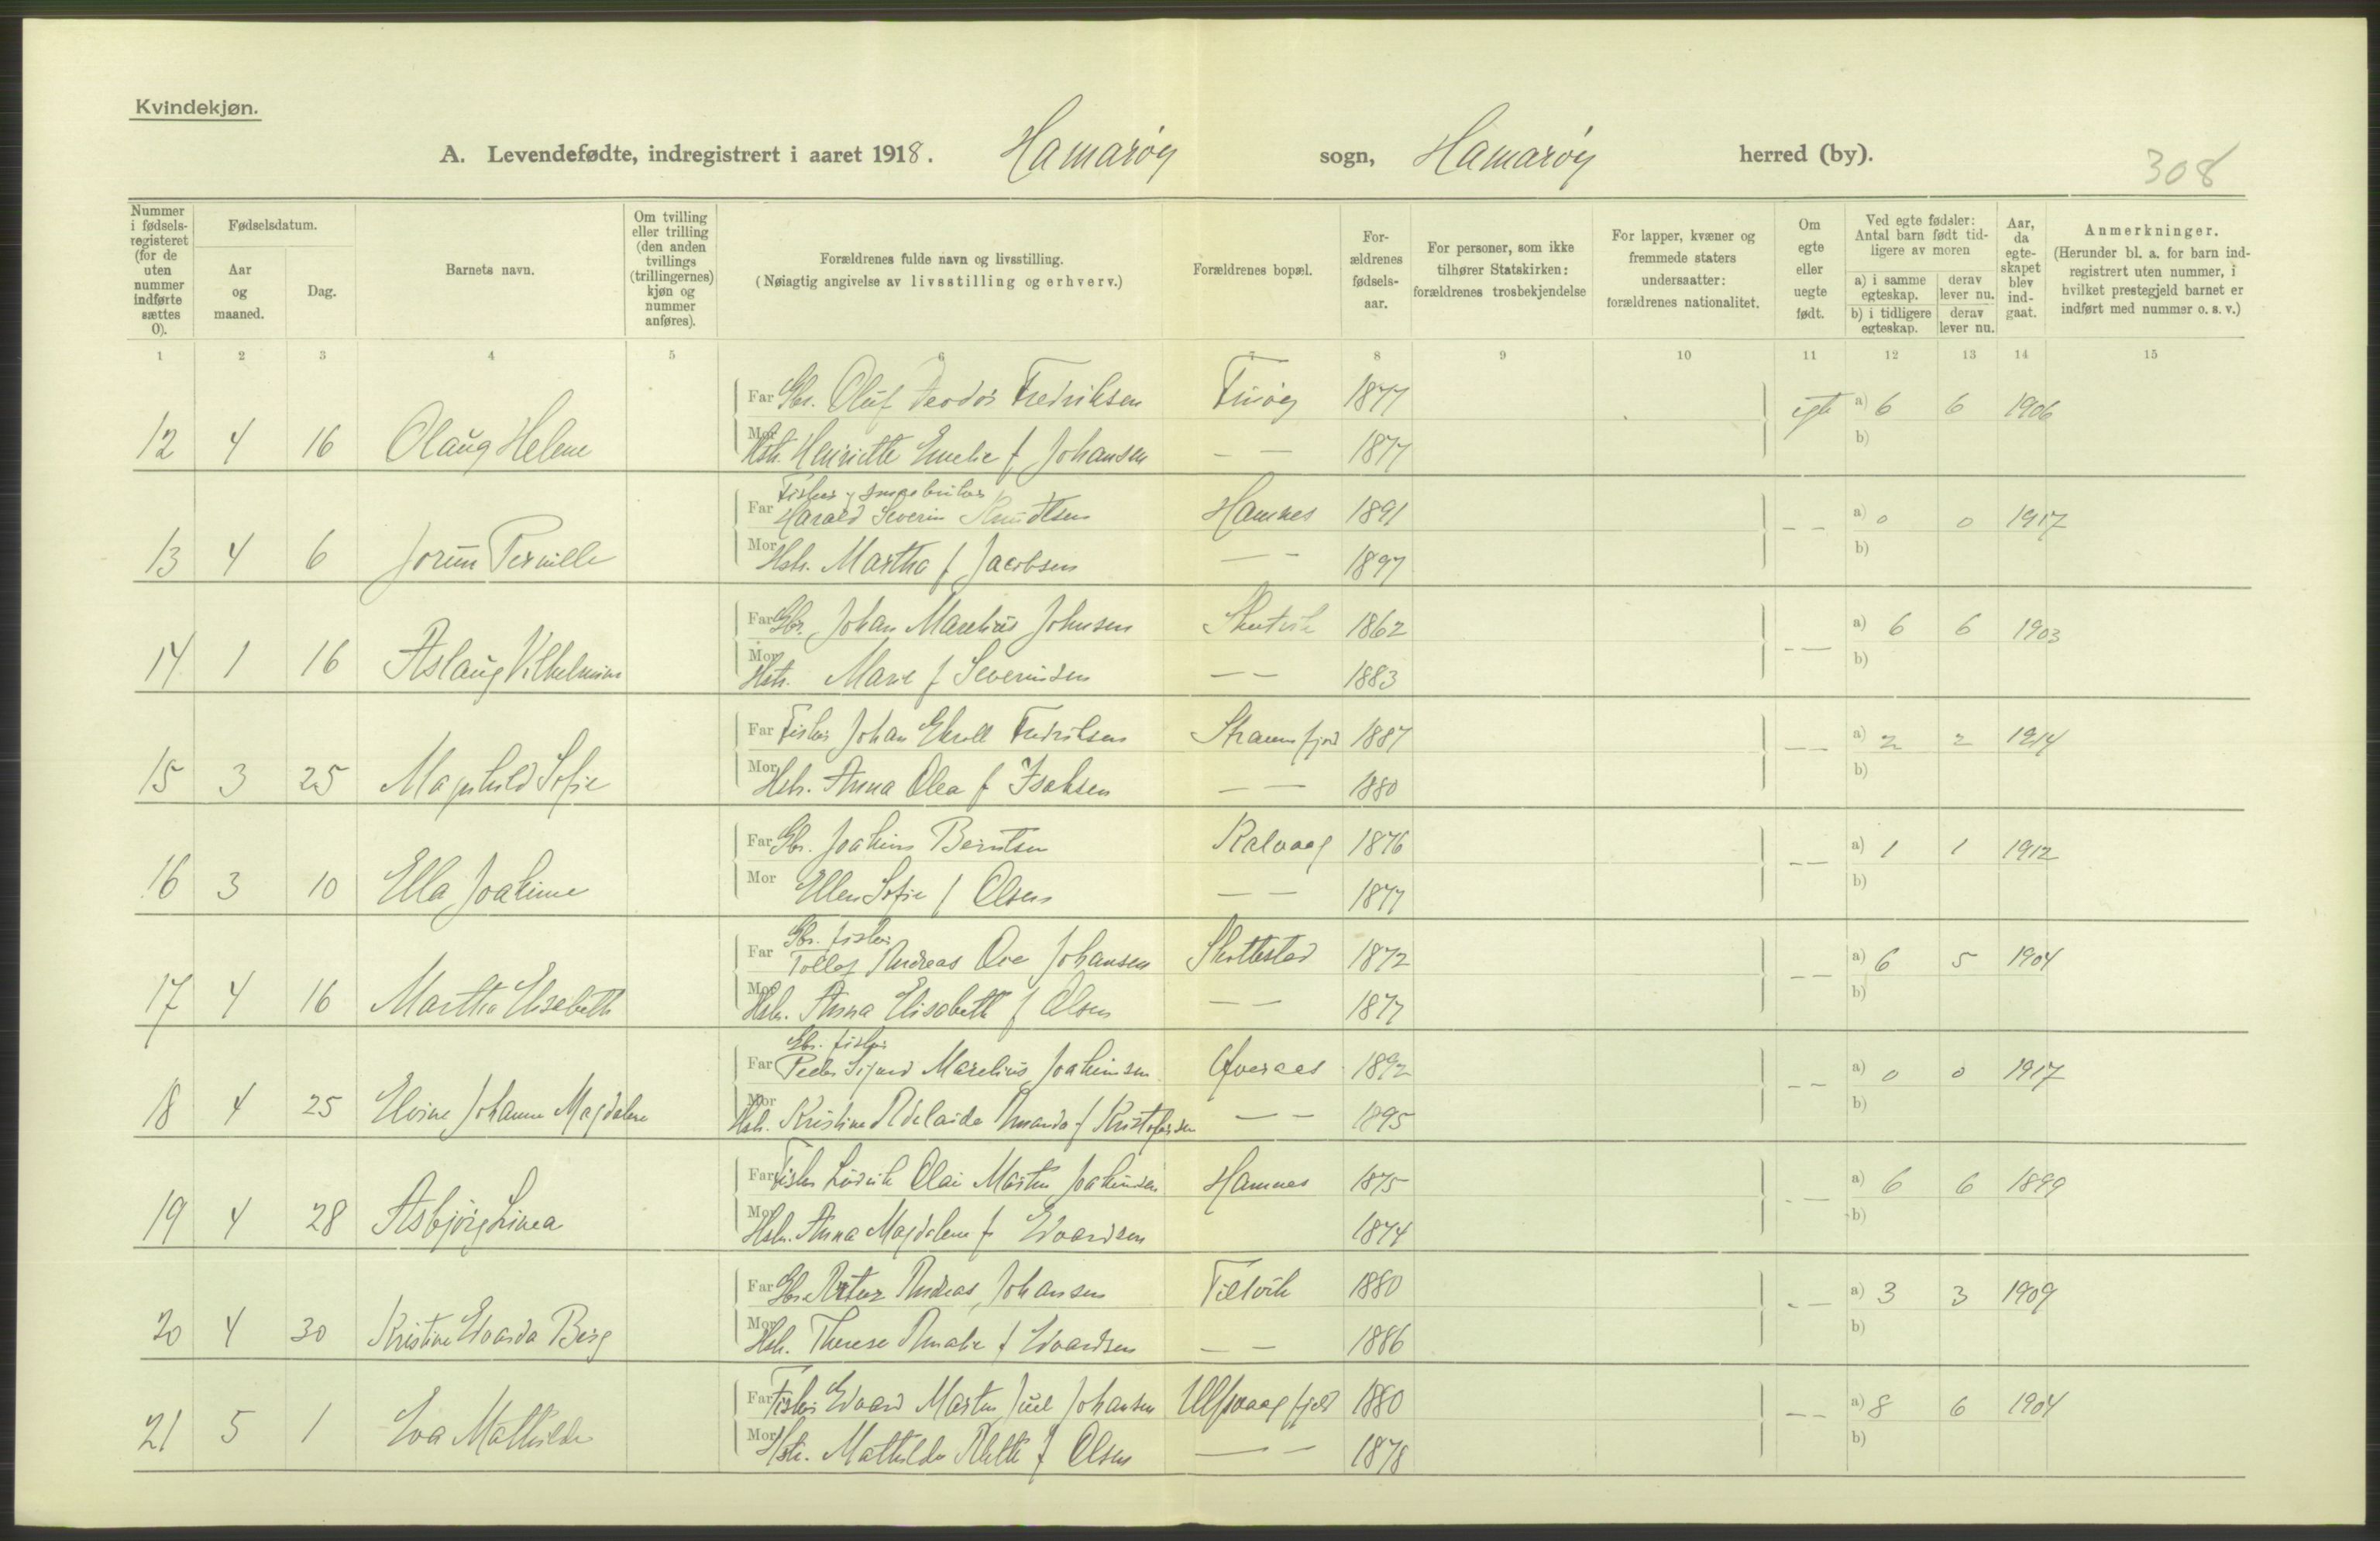 Kvindekjøn.
A. Levendefødte, indregistrert i aaret 1918. Hamarøy sogn, Hamarøy herred (by).
308
Nummer i fødselsregisteret (for de uten nummer indførte sættes 0).
Fødselsdatum.
Aar og maaned.
Dag.
Barnets navn.
Om tvilling eller trilling (den anden tvillings (trillingernes) kjøn og nummer anføres).
Forældrenes fulde navn og livsstilling.
(Nøiagtig angivelse av livsstilling og erhverv.)
Forældrenes bopæl.
Forældrenes fødselsaar.
For personer, som ikke tilhører Statskirken: forældrenes trosbekjendelse
For lapper, kvæner og fremmede staters undersaatter: forældrenes nationalitet.
Om egte eller uegte født.
Ved egte fødsler: Antal barn født tidligere av moren
a) i samme egteskap. derav lever nu.
b) i tidligere egteskap. derav lever nu.
Aar, da egteskapet blev indgaat.
Anmerkninger.
(Herunder bl. a. for barn indregistrert uten nummer, i hvilket prestegjeld barnet er indført med nummer o. s. v.)
1 2 3 4 5 6 7 8 9 10 11 12 13 14 15
Far Gbr. Oluf Teodor Fredriksen 1877 egte a) 6 6 1906
12 4 16 Olaug Helene Mor Hstr. Henriette Emelie f Johansen — — 1877 b)
Fisker
Far Harald Severin Knudtsen Hamnes 1891 — — a) 0 0 1917
13 4 6 Jorun Pernille Mor Hstr. Martha f Jacobsen — — 1897 b)
Far Gbr. Johan Marelius Johnsen Skutvik 1862 — — a) 6 6 1903
14 1 16 Aslaug Vilhelmine Mor Hstr. Marie f Severinsen — — 1883 b)
Far Fisker Johan Fredriksen 1887 — — a) 2 2 1914
15 3 25 Magnhild Sofie Mor Hstr. Anna Olea f Isaksen — — 1880 b)
Far Gbr. Joakim Berntsen Kalvaag 1876 — — a) 1 1 1912
16 3 10 Ella Joakime Mor Ellen Sofie f Olsen — — 1877 b)
Gbr. fisker
Far Tollef Andreas Ove Johansen Skottestad 1872 — — a) 6 5 1904
17 4 16 Martha Elisabeth Mor Hstr. Anna Elisabeth f Olsen — — 1877 b)
Gbr. fisker
Far Peder Sigurd Marelius Joakimsen 1892 — — a) 0 0 1917
18 4 25 Elvine Johanne Magdalene Mor Hstr. Kristine Adelaide Amanda f Kristofersen — — 1895 b)
Far Fisker Ludvik Olai Martin Joakimsen Hamnes 1875 — — a) 6 6 1899
19 4 28 Asbjørg Linea Mor Hstr. Anna Magdalene f Edvardsen 1874 b)
Far Gbr. Artur Andreas Johansen 1880 — — a) 3 3 1909
20 4 30 Kristine Edvarda Berg Mor Hstr. Therese Amalie f Edvardsen — — 1886 b)
Far Fisker Edvard Martin Juel Johansen Ulfsvaag fjeld 1880 — — a) 8 6 1904
21 5 1 Eva Mathilde Mor Hstr. Mathilde f Olsen — — 1878 b)